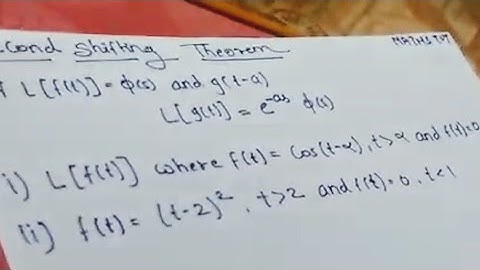 cond Shifting Theorem
MATHS
f L[f(t)] = φ(s) and g(t-a)
L[g(t)] = e^-as φ(s)
i) L[f(t)] where f(t) = Cos(t-α), t>α and f(t)=0
(ii) f(t) = (t-2)², t>2 and f(t)=0, t<1